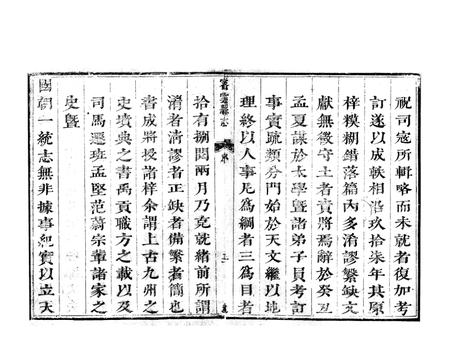 祝司寇所輯略而未就者復加考
訂遂以成帙相沿玖拾柒年其原
梓模糊錯落篇內多淆謬繁缺文
獻無徵守土者責將焉辭於癸
孟夏謀於太學暨諸弟子員考訂
事實疏類分門始於天文繼以地
理終以人事凡爲綱者三爲目者
縣志 序
拾有捌閱兩月乃克就緒前所謂
淆者清謬者正缺者備繁者簡也
書成將授諸梓余謂上古九州之
史墳典之書禹貢職方之載以及
司馬遷班孟堅范蔚宗輩諸家之
史暨
國朝一統志無非據事紀實以立天